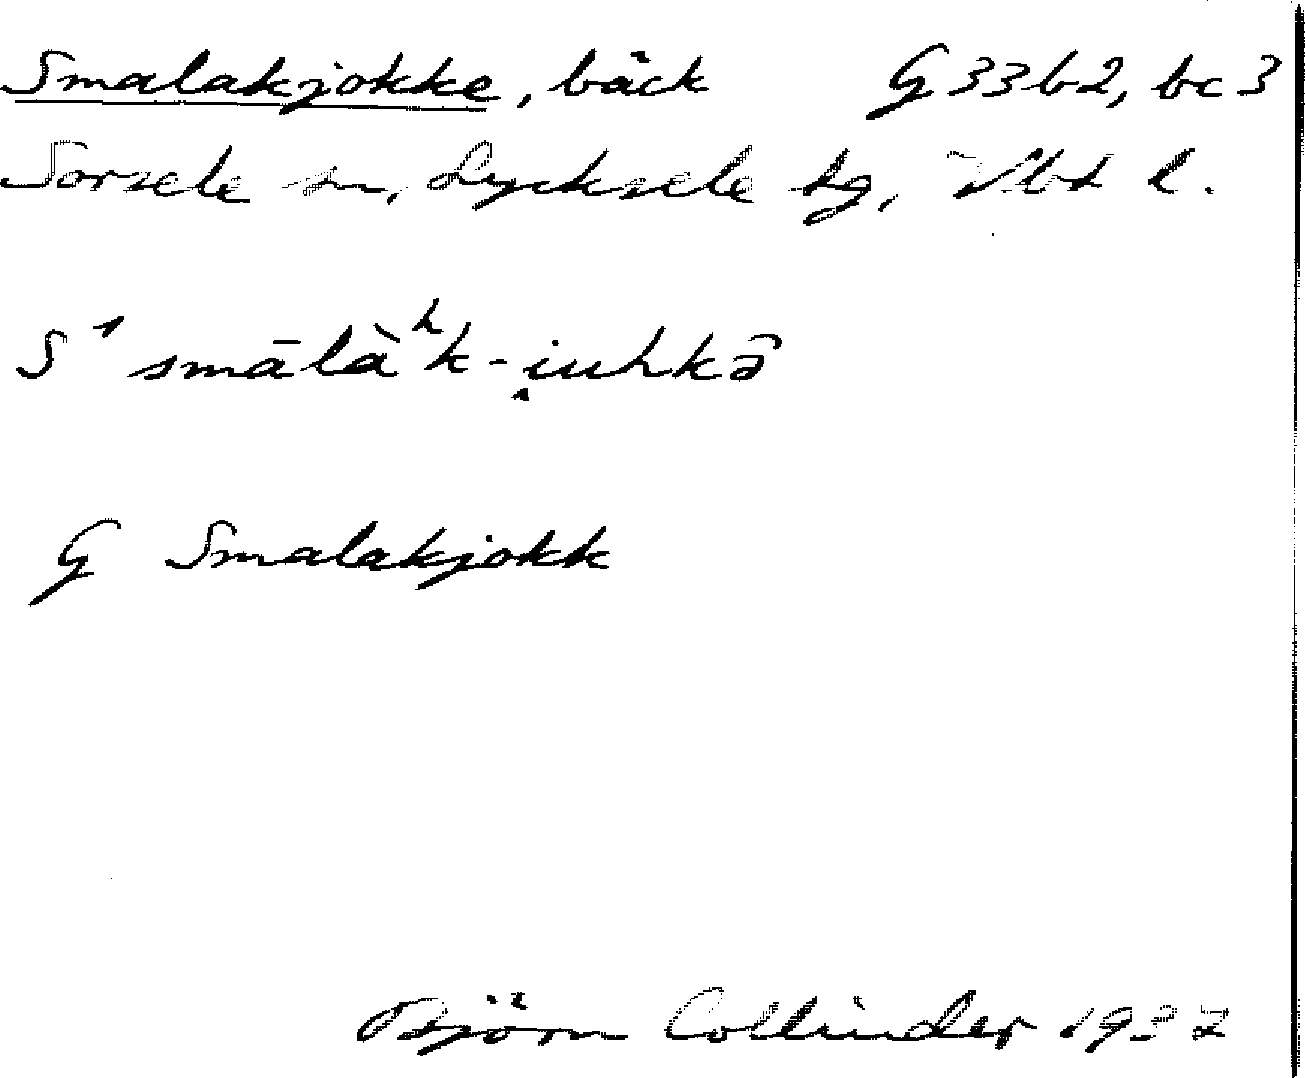 Smalakjokke, bäck G33b2, bc3
Sorsele sn, Lycksele tg, Vbt l.
S¹ smālàʰk-i̭uhkə̄
G Smalakjokk
Björn Collinder 1937